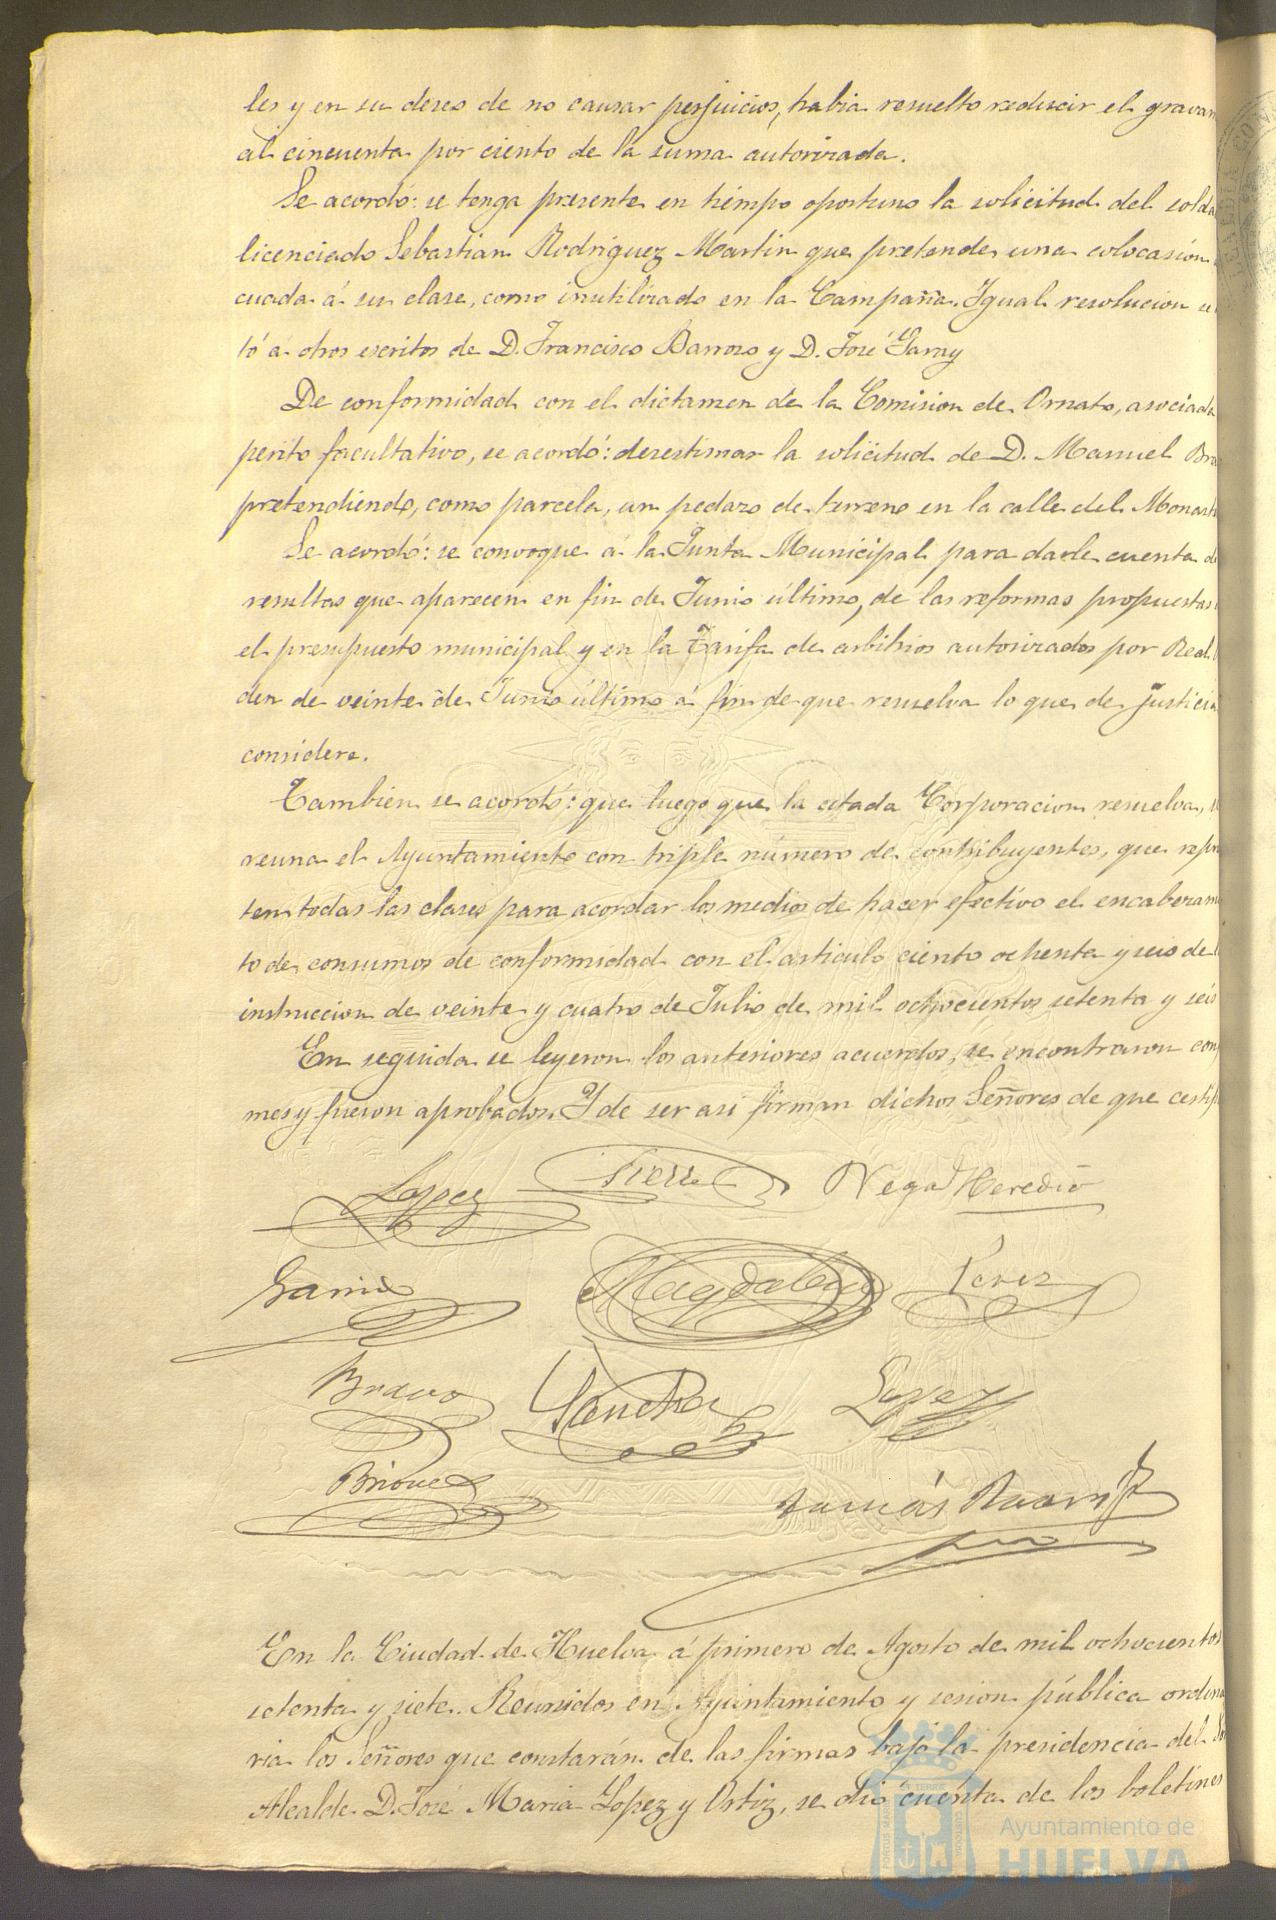 les y en su deseo de no causar perjuicios, habia resuelto reducir el gravam
al cincuenta por ciento de la suma autorizada.
Se acordó: se tenga presente en tiempo oportuno la solicitud del solda
licenciado Sebastian Rodriguez Martin que pretende una colocasión
cuada á su clase, como inutilizado en la Campaña. Ygual resolucion se
tó á otros escritos de D. Francisco Barroso y D. José Garay
De conformidad con el dictamen de la Comision de Ornato, asociada
perito facultativo, se acordó: desestimar la solicitud de D. Manuel Bra
pretendiendo, como parcela, un pedazo de terreno en la calle del Monast
Se acordó: se convoque á la Junta Municipal para darle cuenta de
resultas que aparecen en fin de Junio último, de las reformas propuestas
el presupuesto municipal y en la Tarifa de arbitrios autorizados por Real
den de veinte de Junio último á fin de que resuelva lo que de justicia
considere.
Tambien se acordó: que luego que la citada Corporacion resuelva, se
reuna el Ayuntamiento con triple número de contribuyentes, que repre
ten todas las clases para acordar los medios de hacer efectivo el encabezam
to de consumos de conformidad con el articulo ciento ochenta y seis de l
instruccion de veinte y cuatro de Julio de mil ochocientos setenta y seis
En seguida se leyeron los anteriores acuerdos, se encontraron con
mes y fueron aprobados. Y de ser asi firman dichos Señores de que certif
Lopez Vega Heredia
Garcia Magdalena Perez
Bravo Sanchez Lopez
En la Ciudad de Huelva á primero de Agosto de mil ochocientos
setenta y siete. Reunidos en Ayuntamiento y sesion pública ordina
ria los Señores que constarán de las firmas bajo la presidencia del Sr
Alcalde D. José Maria Lopez y Ortiz, se dió cuenta de los boletines
Ayuntamiento de
HUELVA